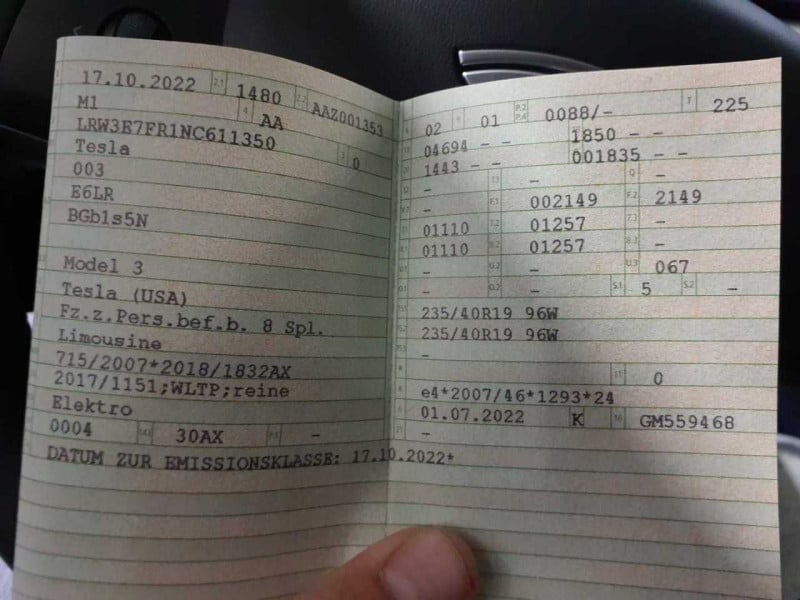 17.10.2022 2.1 1480 2.2 AAZ001353
M1 4 AA
LRW3E7FR1NC611350 3 0
Tesla
003
E6LR
BGb1s5N
Model 3
Tesla (USA)
Fz.z.Pers.bef.b. 8 Spl.
Limousine
715/2007*2018/1832AX
2017/1151;WLTP;reine
Elektro
0004 14.1 30AX P.1 -
DATUM ZUR EMISSIONSKLASSE: 17.10.2022*
02 9 01 P.2 P.4 0088/- T 225
04694 - - 1850 - -
1443 - - 001835 - -
- 13 - Q -
- F.1 002149 F.2 2149
01110 7.2 01257 7.3 -
01110 8.2 01257 8.3 -
- U.2 - U.3 067
- O.2 - S.1 5 S.2 -
235/40R19 96W
235/40R19 96W
-
11 0
e4*2007/46*1293*24
01.07.2022 K 16 GM559468
-